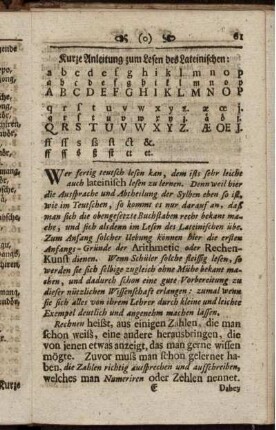 (o) 61
Kurze Anleitung zum Lesen des Lateinischen:
a b c d e f g h i k l m n o p
a b c d e f g h i k l m n o p
A B C D E F G H I K L M N O P
q r ſ t u v w x y z. æ œ j.
Q. R S T U V W X Y Z. Æ OE J.
Wer fertig teutsch lesen kan, dem ists sehr leicht
auch lateinisch lesen zu lernen. Denn weil hier
die Aussprache und Abtheilung der Sylben eben so ist,
wie im Teutschen, so kommt es nur darauf an, daß
man sich die obengesetzte Buchstaben recht bekant ma-
che, und sich alsdenn im Lesen des Lateinischen übe.
Zum Anfang solcher Uebung können hier die ersten
Anfangs-Gründe der Arithmetic oder Rechen-
Kunst dienen. Wenn Schüler solche fleissig lesen, so
werden sie sich selbige zugleich ohne Mühe bekant ma-
chen, und dadurch schon eine gute Vorbereitung zu
dieser nützlichen Wissenschaft erlangen: zumal wenn
sie sich alles von ihrem Lehrer durch kleine und leichte
Exempel deutlich und angenehm machen lassen.
Rechnen heißt, aus einigen Zahlen, die man
schon weiß, eine andere herausbringen, die
von jenen etwas anzeigt, das man gerne wissen
mögte. Zuvor muß man schon gelernet ha-
ben, die Zahlen richtig aussprechen und aufschreiben,
welches man Numeriren oder Zehlen nennet.
E Dabey
Kurze